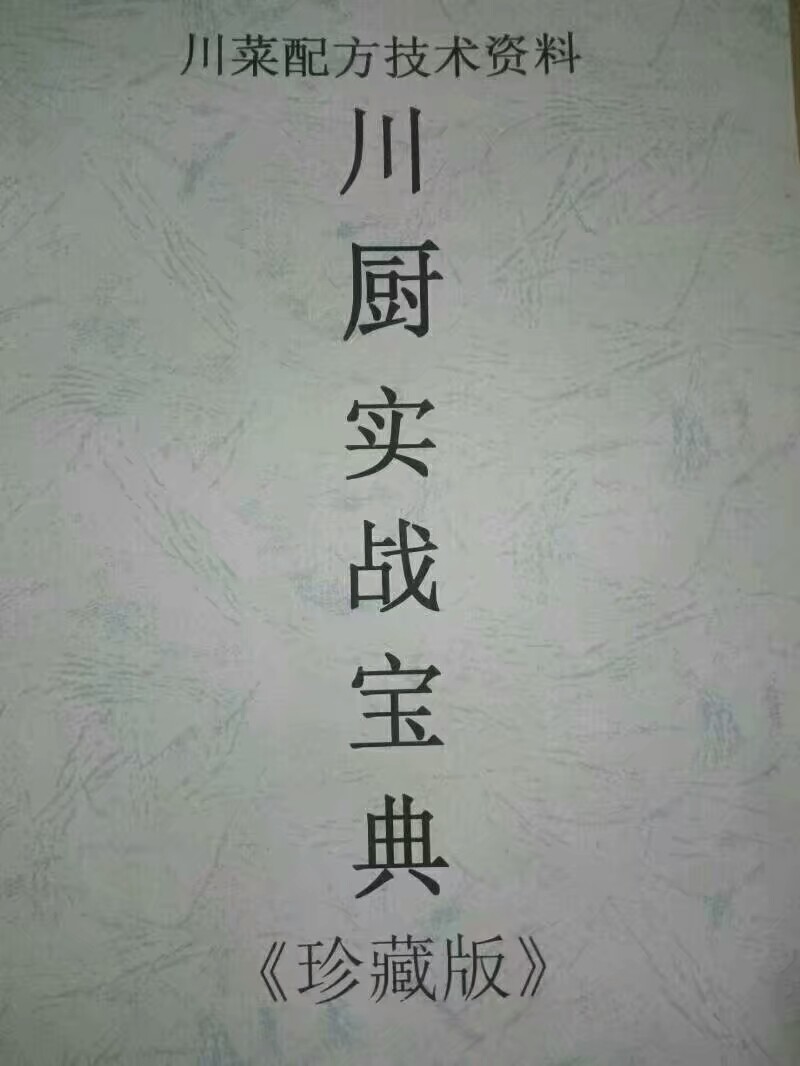 川菜配方技术资料
川厨实战宝典
《珍藏版》